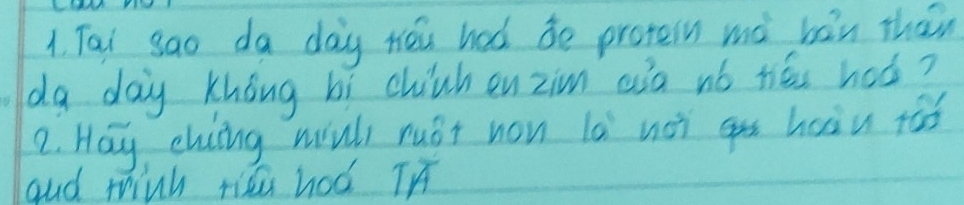 1. Tại sao dạ dày tiêu hoá đc protein mà bản thân
dạ dày không bị chính enzim của nó tiêu hoá?
2. Hãy chứng minh ruột non là nơi hoàn tất
quá trình tiêu hoá TĂ